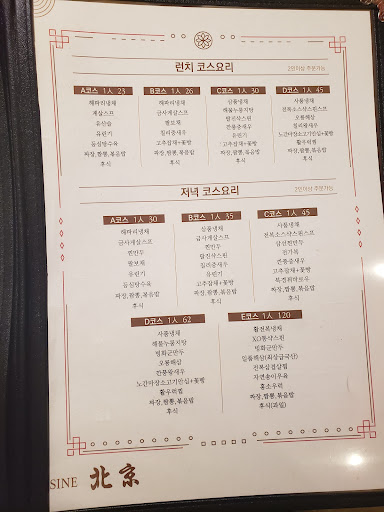 런치 코스요리
2인이상 주문가능
A코스 1人 23
해파리냉채
게살스프
유산슬
유린기
등심탕수육
짜장,짬뽕,볶음밥
후식
B코스 1人 26
해파리냉채
금사게살스프
팔보채
칠리중새우
고추잡채+꽃빵
짜장,짬뽕,볶음밥
후식
C코스 1人 30
삼품냉채
해물누룽지탕
깐풍중새우
유린기
고추잡채+꽃빵
짜장,짬뽕,볶음밥
후식
D코스 1人 45
사품냉채
전복소스샥스핀스프
오룡해삼
칠리중새우
노간마장소고기안심+꽃빵
활우럭찜
짜장,짬뽕,볶음밥
후식
저녁 코스요리
2인이상 주문가능
A코스 1人 30
해파리냉채
금사게살스프
찐만두
팔보채
유린기
등심탕수육
짜장,짬뽕,볶음밥
후식
B코스 1人 35
삼품냉채
금사게살스프
찐만두
칠리중새우
유린기
고추잡채+꽃빵
짜장,짬뽕,볶음밥
후식
C코스 1人 45
사품냉채
전복소스샥스핀스프
삼선찐만두
전가복
깐풍중새우
고추잡채+꽃빵
북경꿔바로우
짜장,짬뽕,볶음밥
후식
D코스 1人 62
사품냉채
해물누룽지탕
빙화군만두
오룡해삼
깐풍왕새우
노간마장소고기안심+꽃빵
활우럭찜
짜장,짬뽕,볶음밥
후식
E코스 1人 120
활전복냉채
XO통샥스핀
빙화군만두
일품해삼(최상급국산)
전복삼겹살찜
자연송이우육
홍소우럭
짜장,짬뽕,볶음밥
후식(과일)
SINE 北京